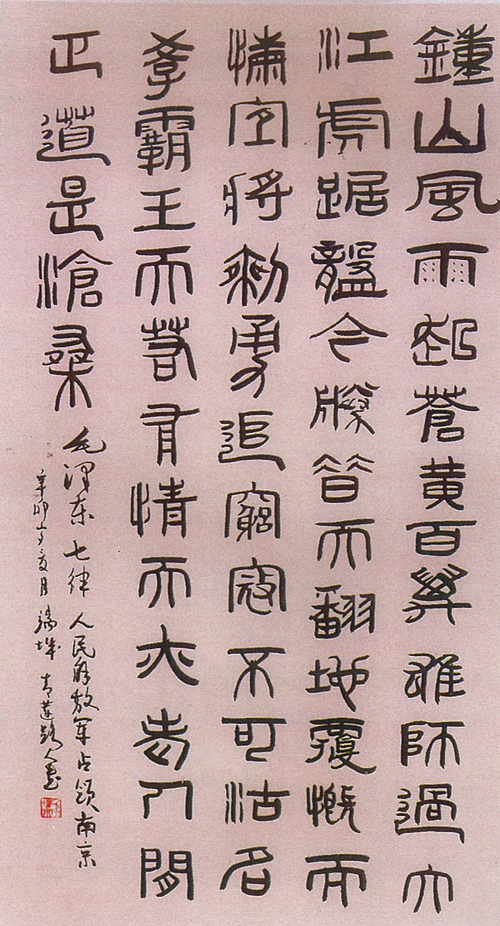 鍾山風雨起蒼黃百萬雄師過大
江虎踞龍盤今勝昔天翻地覆慨而
慷宜將剩勇追窮寇不可沽名
學霸王天若有情天亦老人間
正道是滄桑 毛澤东七律 人民解放军占领南京
辛卯岁亥月 端城 青莲